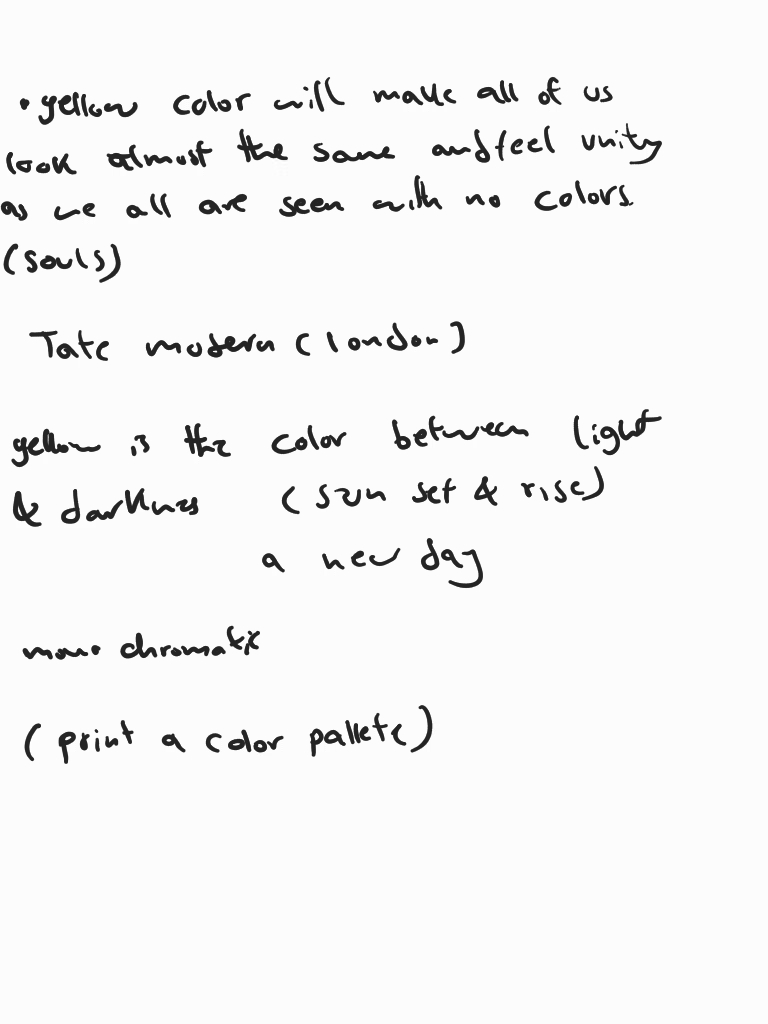 • yellow color will make all of us
look almost the same and feel unity
as we all are seen with no colors
(souls)
Tate modern (london)
yellow is the color between light
& darknes (sun set & rise)
a new day
mono chromatic
(print a color pallete)